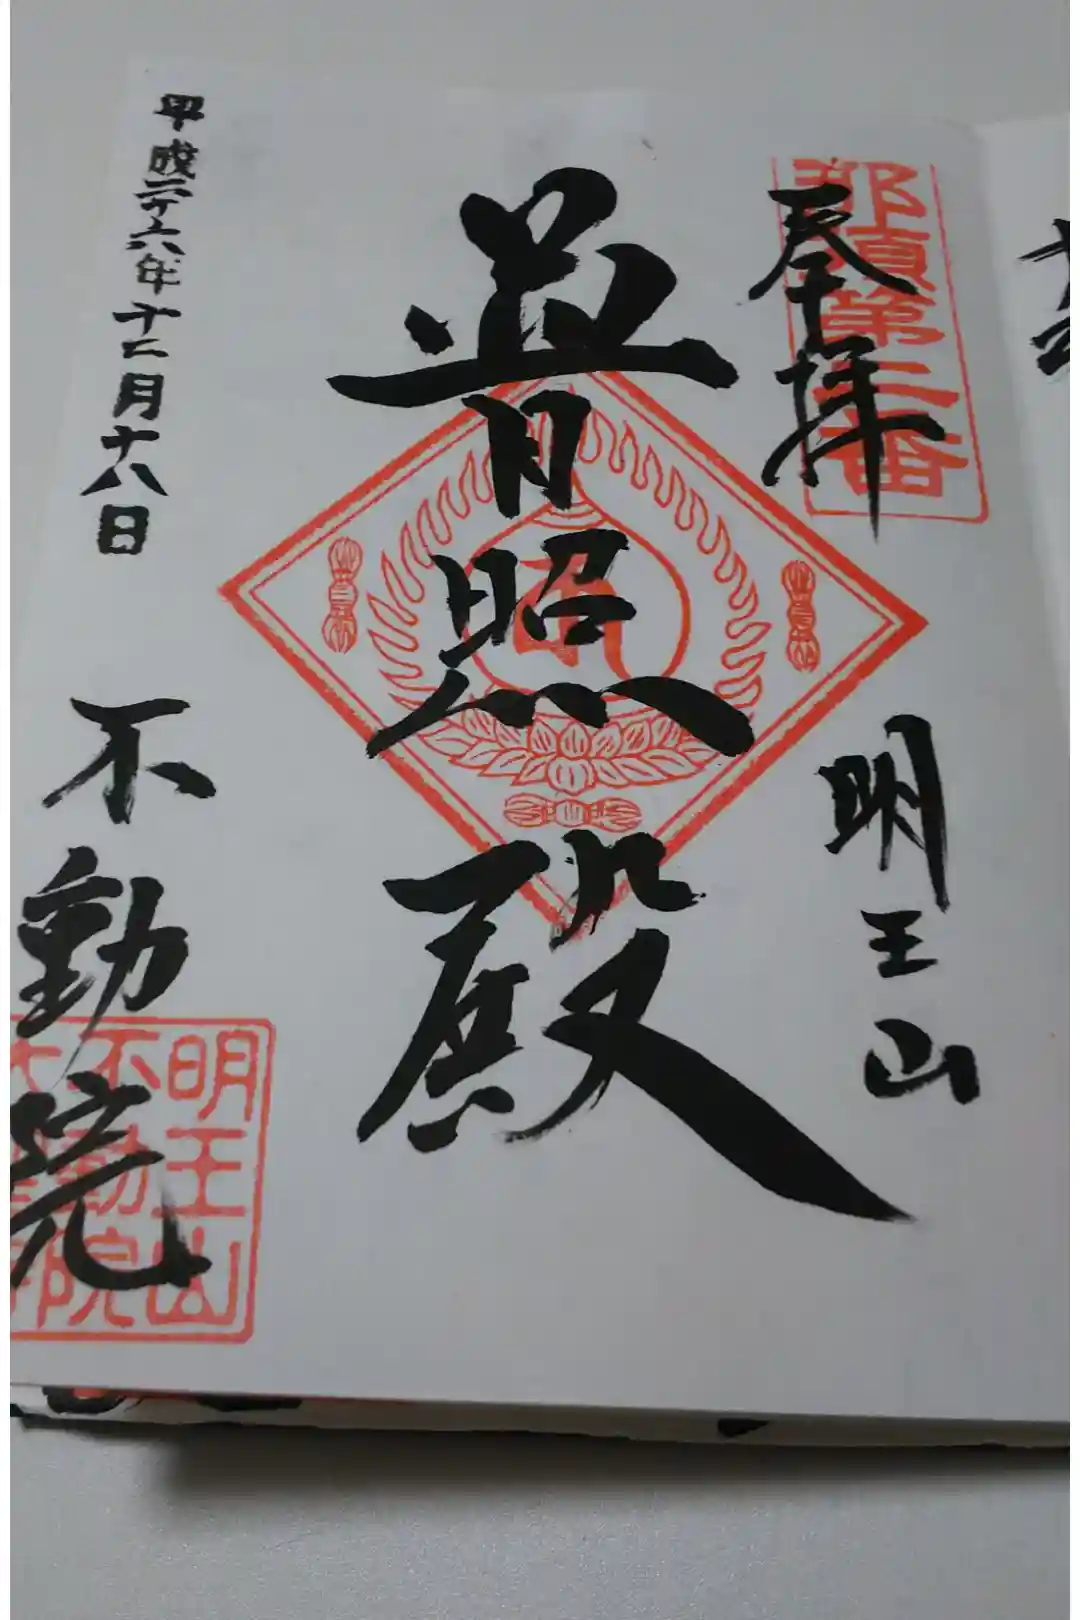 那須第三番
奉拝
明王山
普照殿
平成二十六年十二月十八日
不動院
明王山
不動院